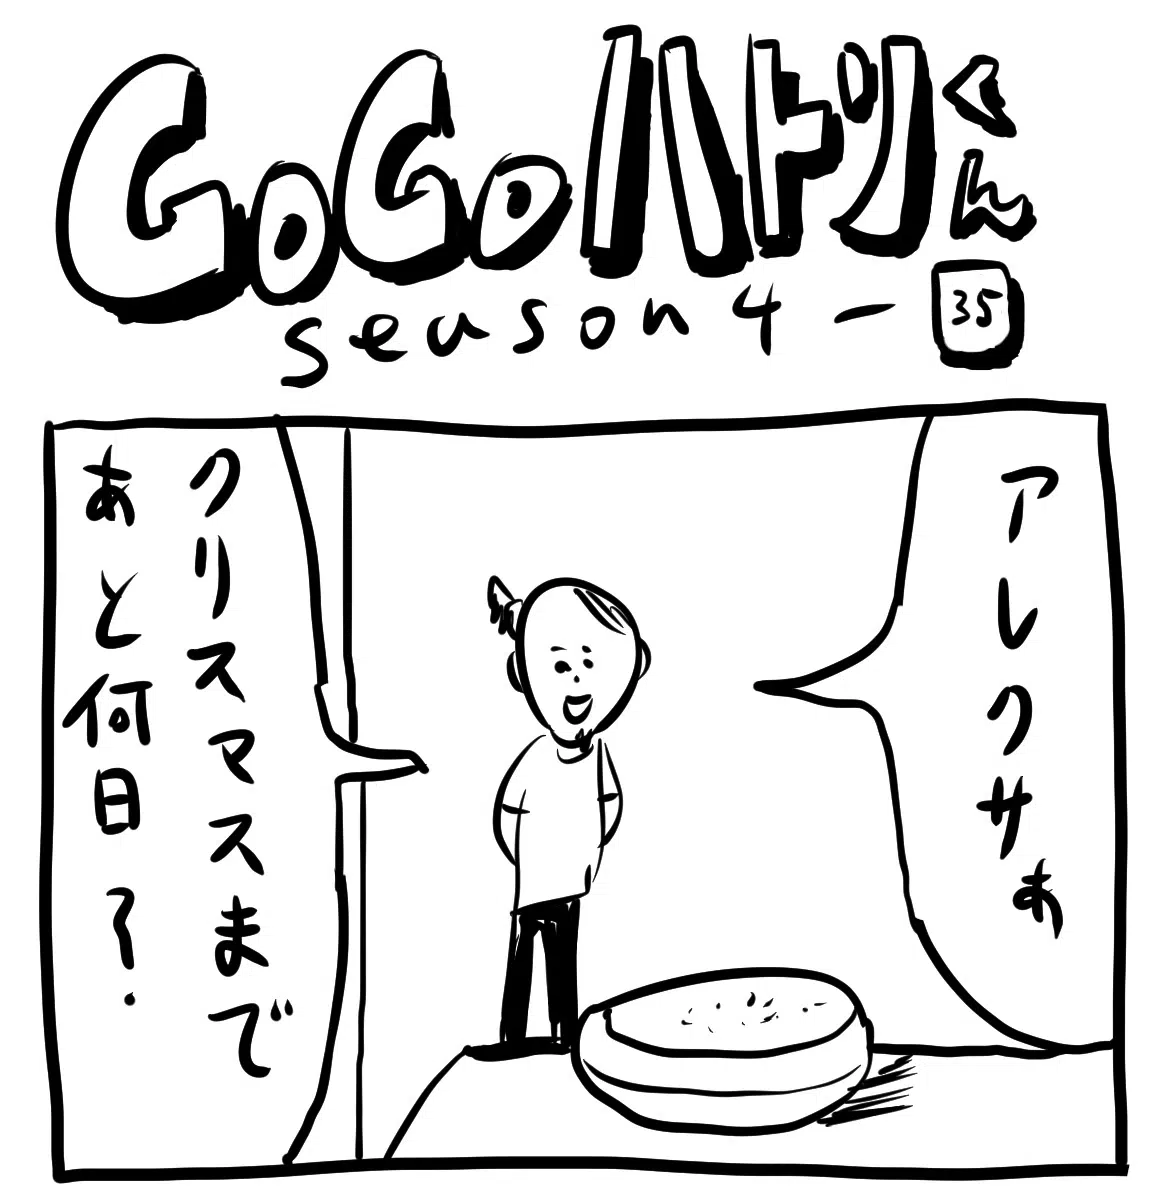 GoGoハトリくん
season4-
35
アレクサぁ
クリスマスまで
あと何日?